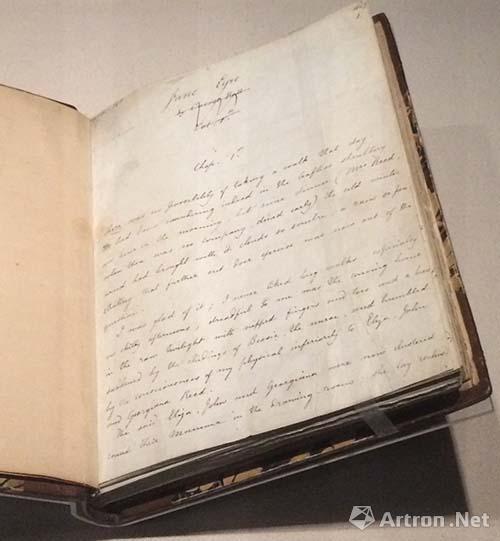 Jane Eyre
Vol. 1st
Chap. 1st
There was no possibility of taking a walk that day.
We had been wandering indeed in the leafless shrubbery
an hour in the morning, but since dinner (Mrs Reed,
when there was no company, dined early) the cold winter
wind had brought with it clouds so sombre, a rain so
penetrating that further out-door exercise was now out of the
question.
I was glad of it; I never liked long walks especially
on chilly afternoons; dreadful to me was the coming home
in the raw twilight with nipped fingers and toes and a heart
saddened by the chidings of Bessie the nurse, and humbled
by the consciousness of my physical inferiority to Eliza, John
and Georgiana Reed.
The said Eliza, John and Georgiana were now clustered
round their Mamma in the drawing-room: she lay
Artron.Net